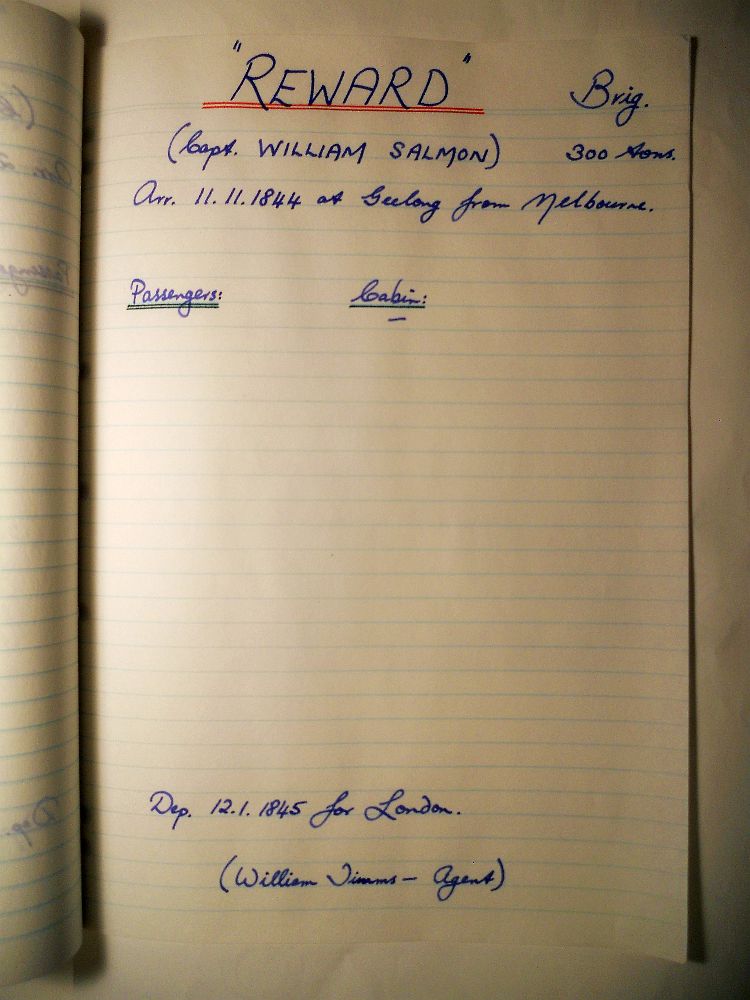 "REWARD" Brig.
(Capt. WILLIAM SALMON) 300 tons.
Arr. 11.11.1844 at Geelong from Melbourne.
Passengers: Cabin:
—
Dep. 12.1.1845 for London.
(William Timms — Agent)